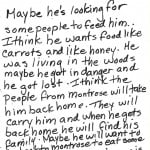 Maybe he's looking for
some people to feed him..
I think he wants food like
carrots and like honey. He
was living in the woods
maybe he got in danger and
he got lost. I think the
People from montrose will take
him back home. They will
carry him and when he gets
back home he will find his
family. Maybe he will want to
montrose to eat some